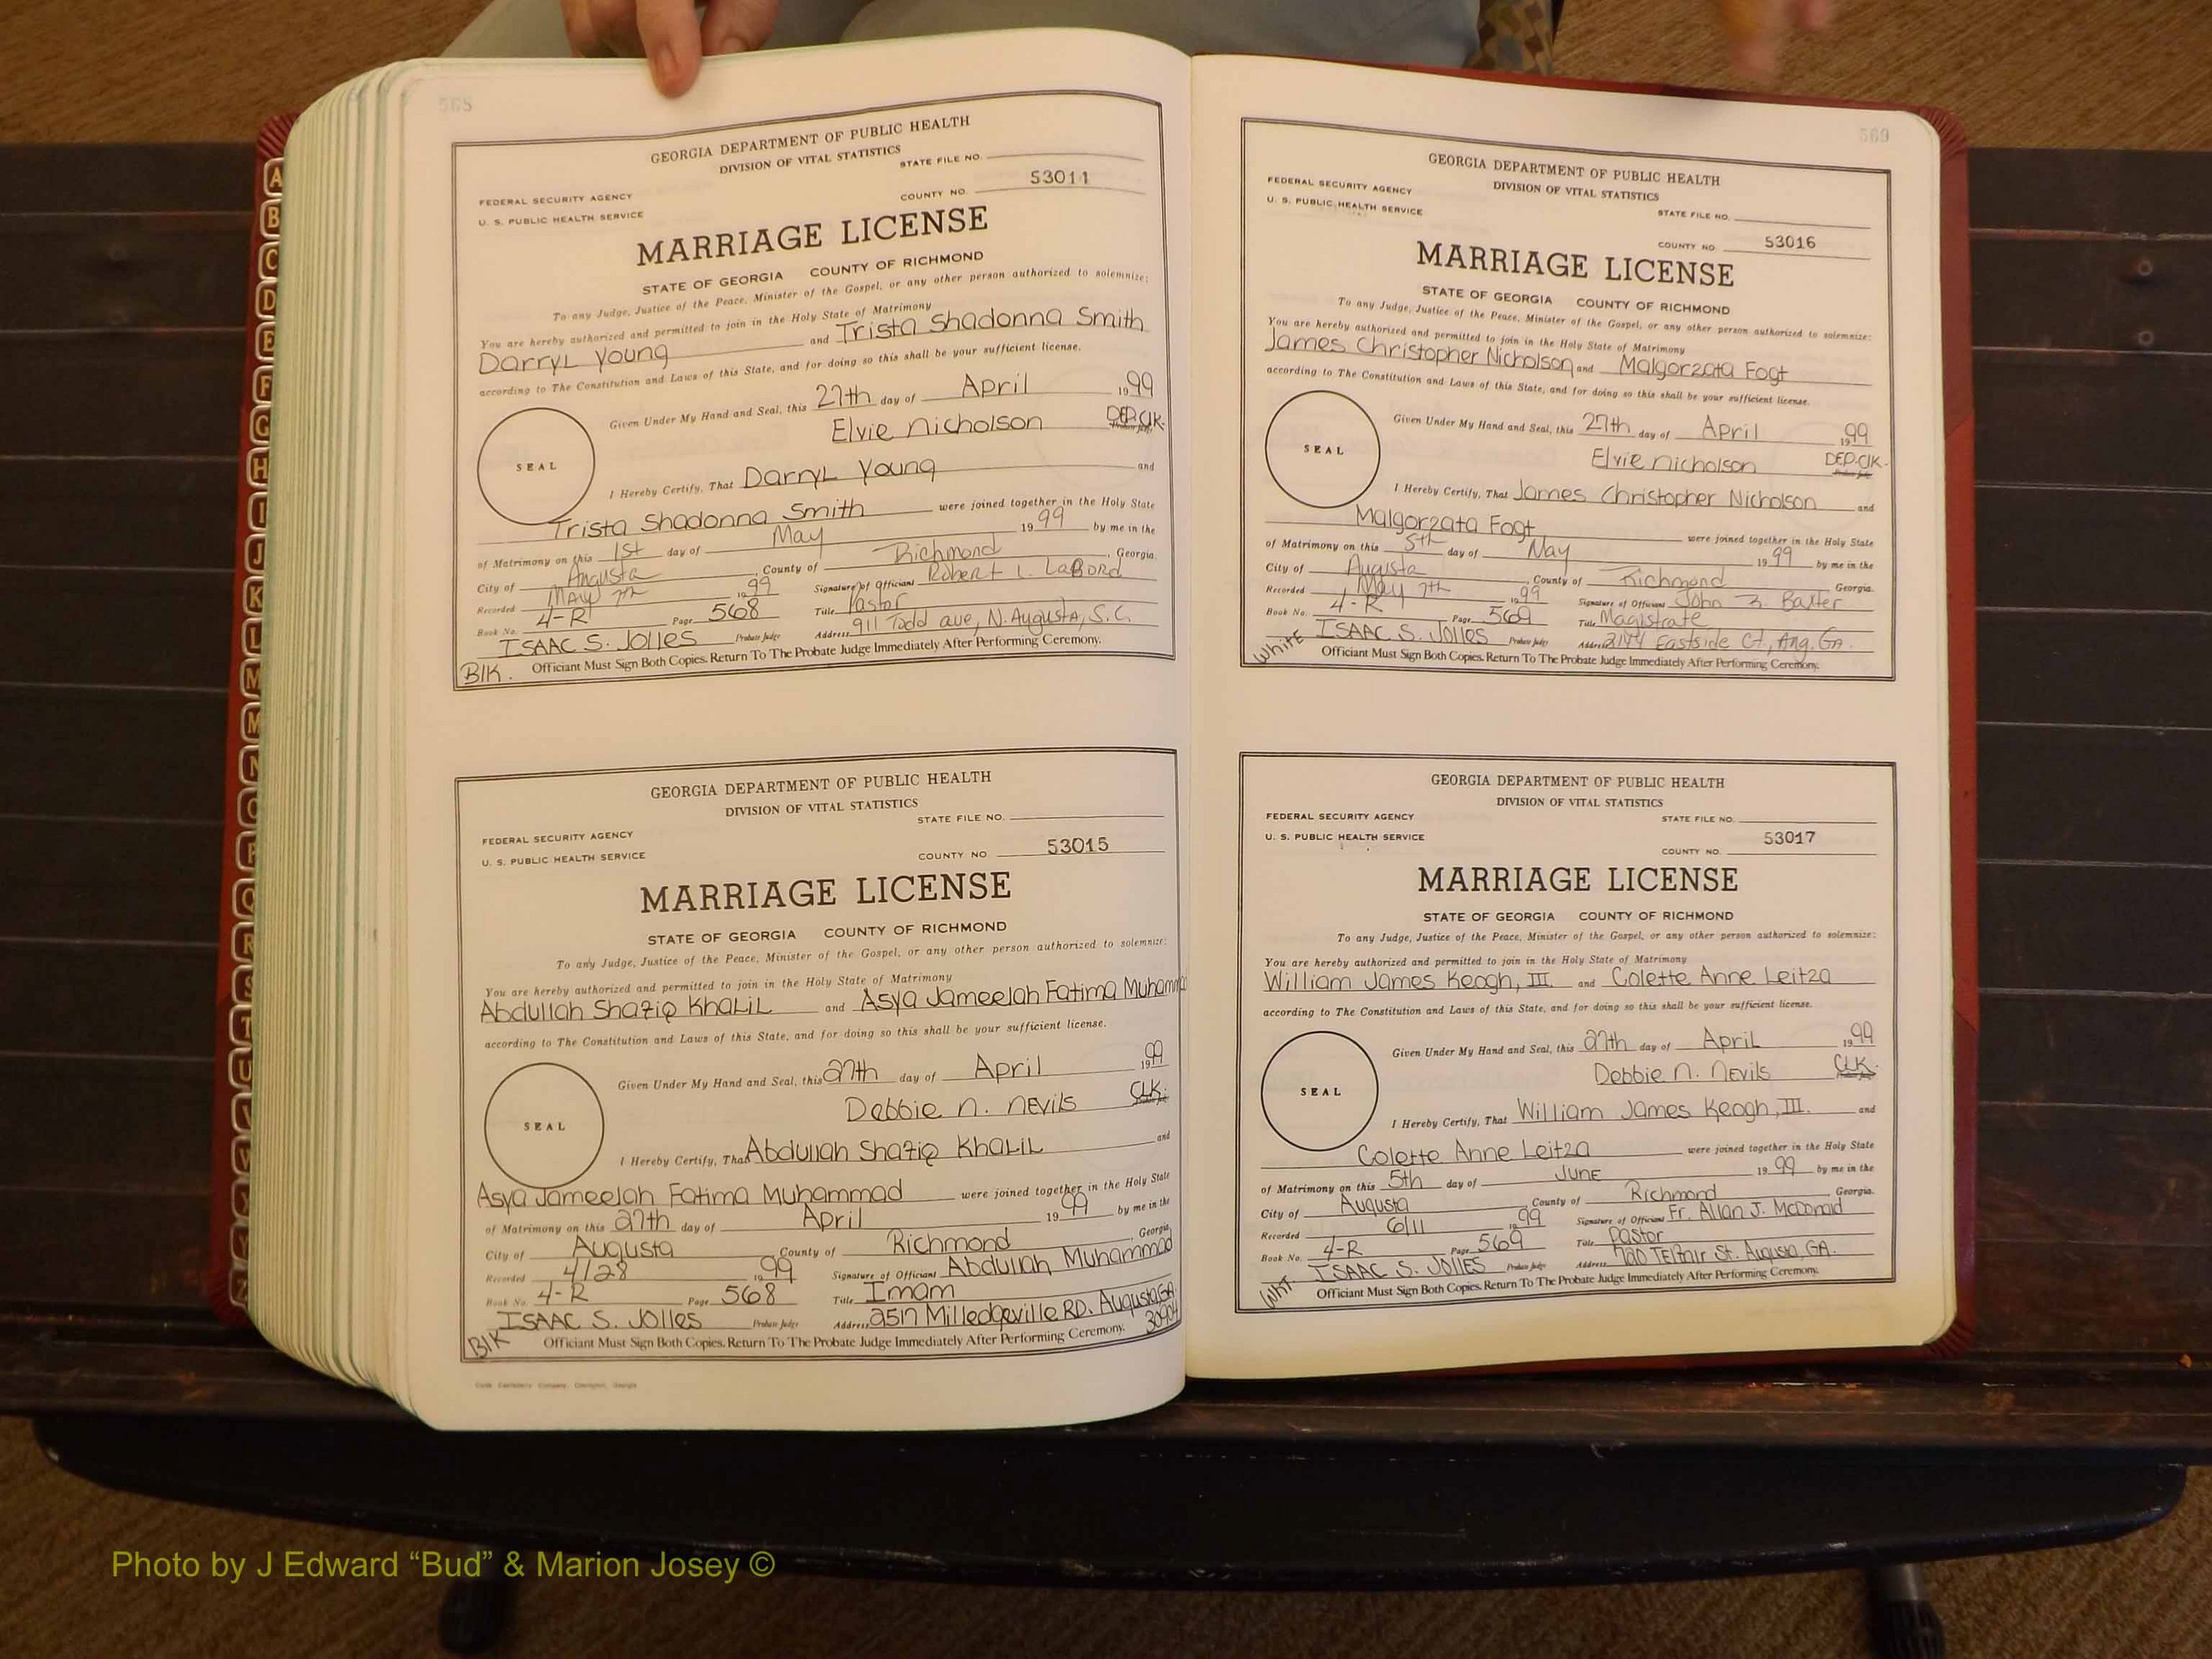 568
GEORGIA DEPARTMENT OF PUBLIC HEALTH
DIVISION OF VITAL STATISTICS
STATE FILE NO.
FEDERAL SECURITY AGENCY
U. S. PUBLIC HEALTH SERVICE
COUNTY NO. 53011
MARRIAGE LICENSE
STATE OF GEORGIA COUNTY OF RICHMOND
To any Judge, Justice of the Peace, Minister of the Gospel, or any other person authorized to solemnize:
You are hereby authorized and permitted to join in the Holy State of Matrimony
Darryl Young and Trista Shadonna Smith
according to The Constitution and Laws of this State, and for doing so this shall be your sufficient license.
Given Under My Hand and Seal, this 27th day of April 1999
SEAL
Elvie Nicholson DEP. Clk.
I Hereby Certify, That Darryl Young and
Trista Shadonna Smith were joined together in the Holy State
of Matrimony on this 1st day of May 1999 by me in the
City of Augusta County of Richmond, Georgia.
Recorded May 7th 1999 Signature of Officiant Robert L. LaBord
Book No. 4-R Page 568 Title Pastor
ISAAC S. JOLLES Probate Judge Address 911 Todd ave, N. Augusta, S.C.
Blk. Officiant Must Sign Both Copies. Return To The Probate Judge Immediately After Performing Ceremony.
GEORGIA DEPARTMENT OF PUBLIC HEALTH
DIVISION OF VITAL STATISTICS
STATE FILE NO.
FEDERAL SECURITY AGENCY
U. S. PUBLIC HEALTH SERVICE
COUNTY NO. 53015
MARRIAGE LICENSE
STATE OF GEORGIA COUNTY OF RICHMOND
To any Judge, Justice of the Peace, Minister of the Gospel, or any other person authorized to solemnize:
You are hereby authorized and permitted to join in the Holy State of Matrimony
Abdullah Shafiq Khalil and Asya Jameelah Fatima Muhammad
according to The Constitution and Laws of this State, and for doing so this shall be your sufficient license.
Given Under My Hand and Seal, this 27th day of April 1999
SEAL
Debbie N. Nevils CLK.
I Hereby Certify, That Abdullah Shafiq Khalil and
Asya Jameelah Fatima Muhammad were joined together in the Holy State
of Matrimony on this 27th day of April 1999 by me in the
City of Augusta County of Richmond, Georgia.
Recorded 4/28 1999 Signature of Officiant Abdullah Muhammad
Book No. 4-R Page 568 Title Imam
ISAAC S. JOLLES Probate Judge Address 2517 Milledgeville RD. Augusta, GA 30904
Blk Officiant Must Sign Both Copies. Return To The Probate Judge Immediately After Performing Ceremony.
569
GEORGIA DEPARTMENT OF PUBLIC HEALTH
DIVISION OF VITAL STATISTICS
FEDERAL SECURITY AGENCY
U. S. PUBLIC HEALTH SERVICE
STATE FILE NO.
COUNTY NO. 53016
MARRIAGE LICENSE
STATE OF GEORGIA COUNTY OF RICHMOND
To any Judge, Justice of the Peace, Minister of the Gospel, or any other person authorized to solemnize:
You are hereby authorized and permitted to join in the Holy State of Matrimony
James Christopher Nicholson and Malgorzata Fogt
according to The Constitution and Laws of this State, and for doing so this shall be your sufficient license.
Given Under My Hand and Seal, this 27th day of April 1999
SEAL
Elvie Nicholson DEP. Clk.
I Hereby Certify, That James Christopher Nicholson and
Malgorzata Fogt were joined together in the Holy State
of Matrimony on this 5th day of May 1999 by me in the
City of Augusta County of Richmond Georgia.
Recorded May 7th 1999 Signature of Officiant John B. Baxter
Book No. 4-R Page 569 Title Magistrate
ISAAC S. JOLLES Probate Judge Address Eastside Ct, Aug. GA.
White Officiant Must Sign Both Copies. Return To The Probate Judge Immediately After Performing Ceremony.
GEORGIA DEPARTMENT OF PUBLIC HEALTH
DIVISION OF VITAL STATISTICS
FEDERAL SECURITY AGENCY
STATE FILE NO.
U. S. PUBLIC HEALTH SERVICE
COUNTY NO. 53017
MARRIAGE LICENSE
STATE OF GEORGIA COUNTY OF RICHMOND
To any Judge, Justice of the Peace, Minister of the Gospel, or any other person authorized to solemnize:
You are hereby authorized and permitted to join in the Holy State of Matrimony
William James Keogh, III and Colette Anne Leitza
according to The Constitution and Laws of this State, and for doing so this shall be your sufficient license.
Given Under My Hand and Seal, this 27th day of April 1999
SEAL
Debbie N. Nevils CLK.
I Hereby Certify, That William James Keogh, III. and
Colette Anne Leitza were joined together in the Holy State
of Matrimony on this 5th day of JUNE 1999 by me in the
City of Augusta County of Richmond Georgia.
Recorded 6/11 1999 Signature of Officiant Fr. Allan J. McDonald
Book No. 4-R Page 569 Title Pastor
ISAAC S. JOLLES Probate Judge Address 720 Telfair St. Augusta, GA.
Wht. Officiant Must Sign Both Copies. Return To The Probate Judge Immediately After Performing Ceremony.
A
B
C
D
E
F
G
H
I
J
K
L
M
M
N
O
P
Q
R
S
T
U
V
Photo by J Edward “Bud” & Marion Josey ©